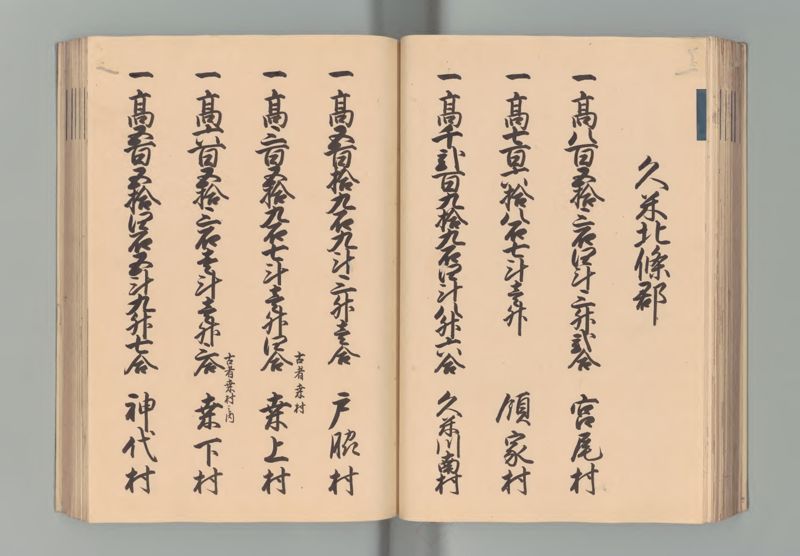 久米北條郡
一 高八百五拾三石四斗三升弐合 宮尾村
一 高七百六拾八石七斗壱升 領家村
一 高千弐百九拾九石四斗八升六合 久米川南村
一 高五百拾九石九斗三升壱合 戸脇村
一 高三百五拾九石七斗壱升四合 古者桒村 桒上村
一 高六百五拾三石壱斗壱升三合 古者桒村之内 桒下村
一 高五百五拾四石五斗九升七合 神代村